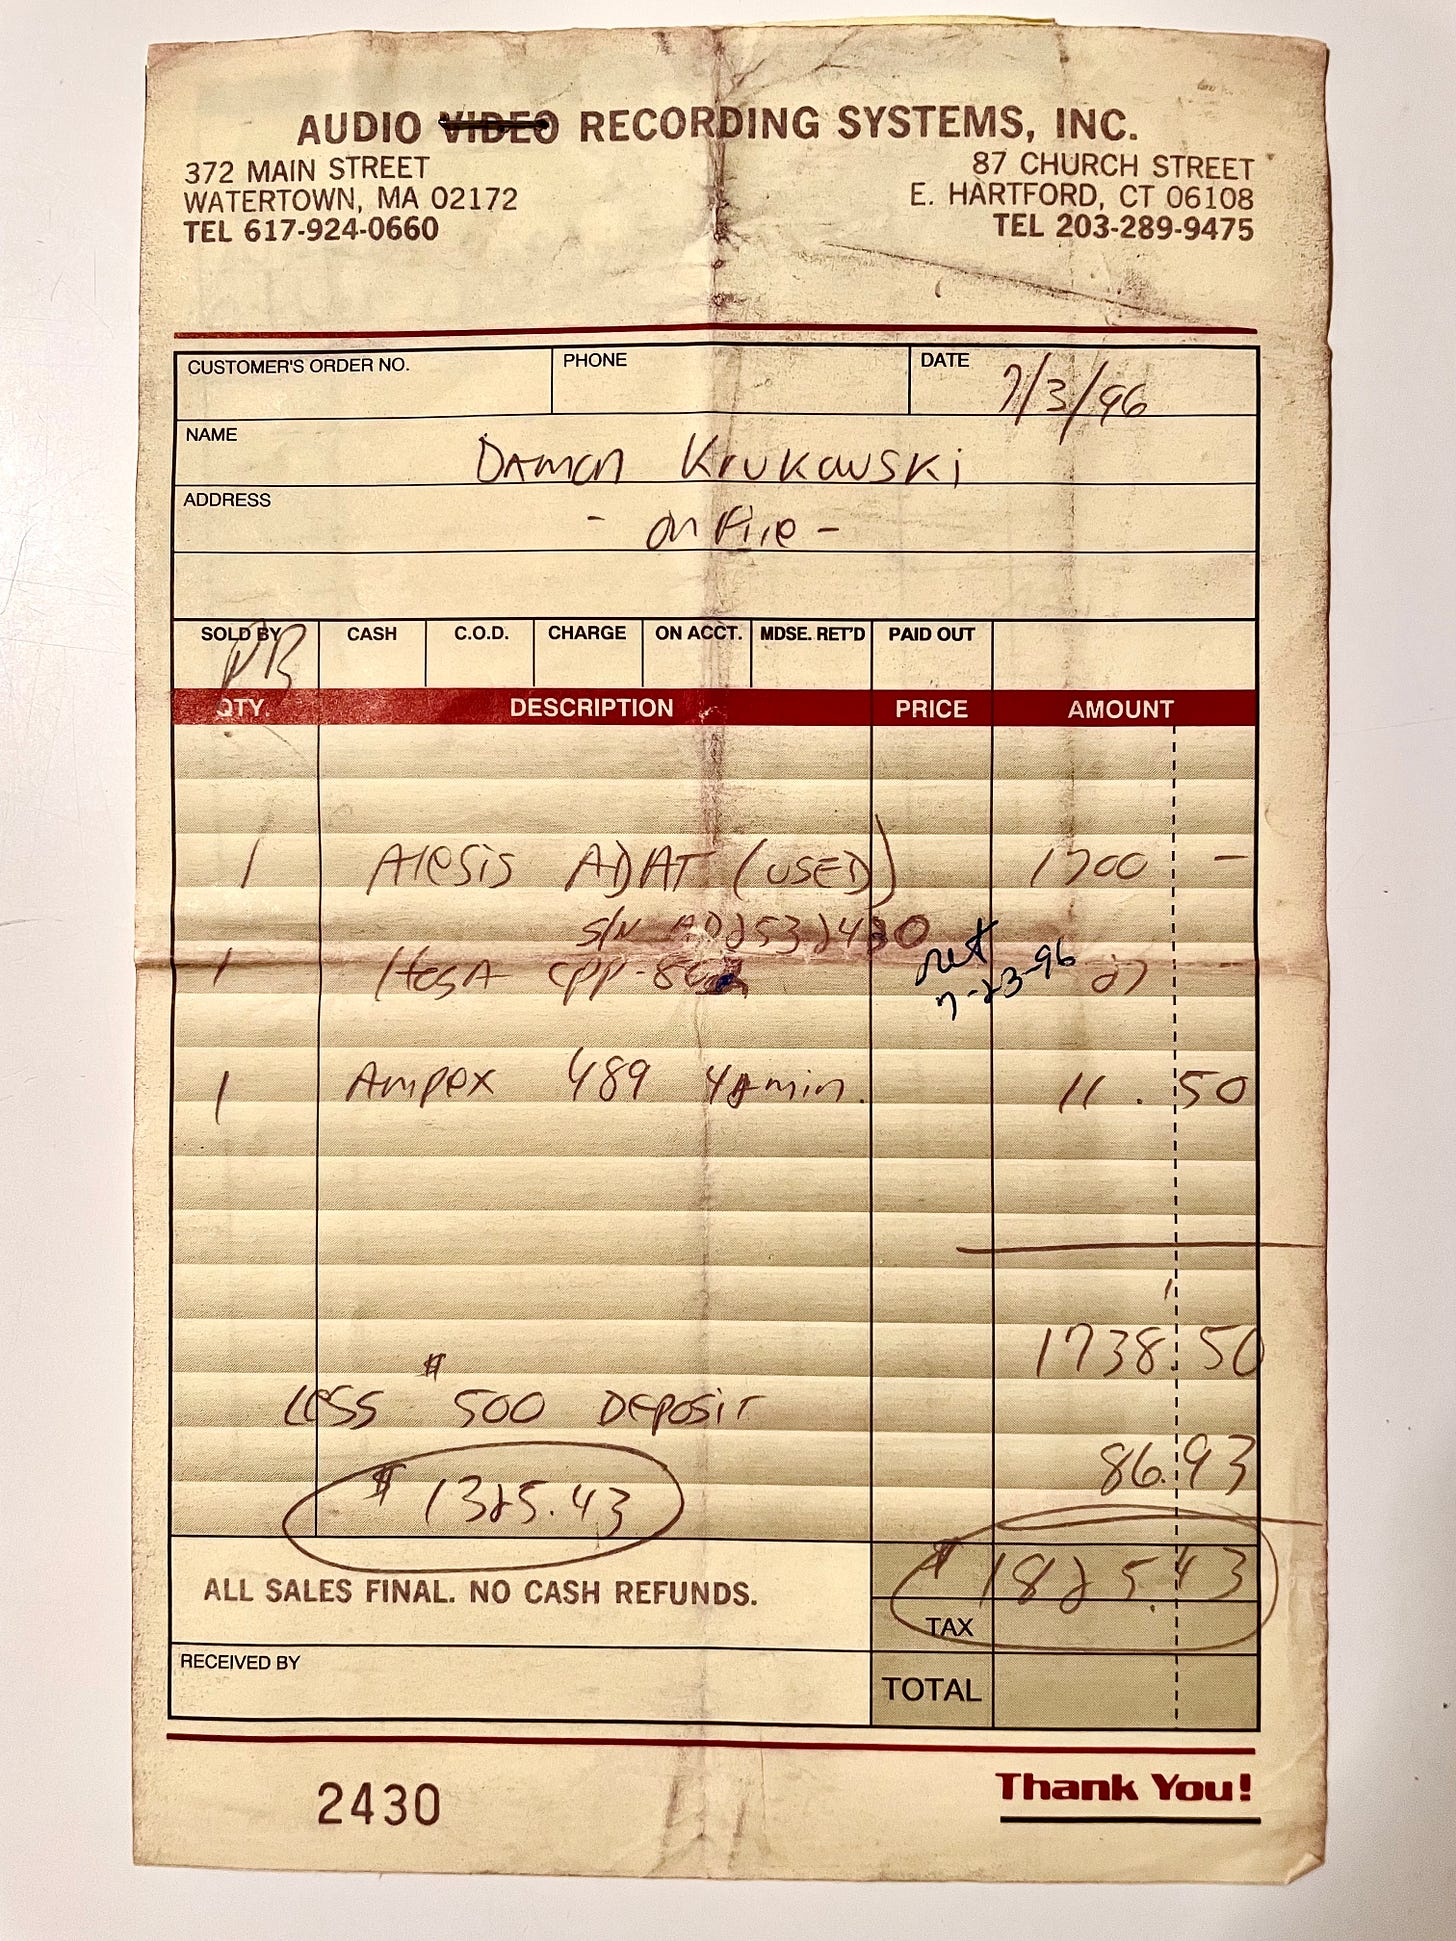 AUDIO VIDEO RECORDING SYSTEMS, INC.
372 MAIN STREET
WATERTOWN, MA 02172
TEL 617-924-0660
87 CHURCH STREET
E. HARTFORD, CT 06108
TEL 203-289-9475
CUSTOMER'S ORDER NO. PHONE DATE 7/3/96
NAME Damon Krukowski
ADDRESS - on Fire -
SOLD BY CASH C.O.D. CHARGE ON ACCT. MDSE. RET'D PAID OUT
QTY. DESCRIPTION PRICE AMOUNT
1 Alesis ADAT (USED) 1700 -
S/N
1 Hosa CPP-80 27
7-23-96
1 Ampex 489 min. 11.50
1738.50
Less $500 Deposit
86.93
$1325.43
$1825.43
ALL SALES FINAL. NO CASH REFUNDS.
TAX
RECEIVED BY
TOTAL
2430
Thank You!